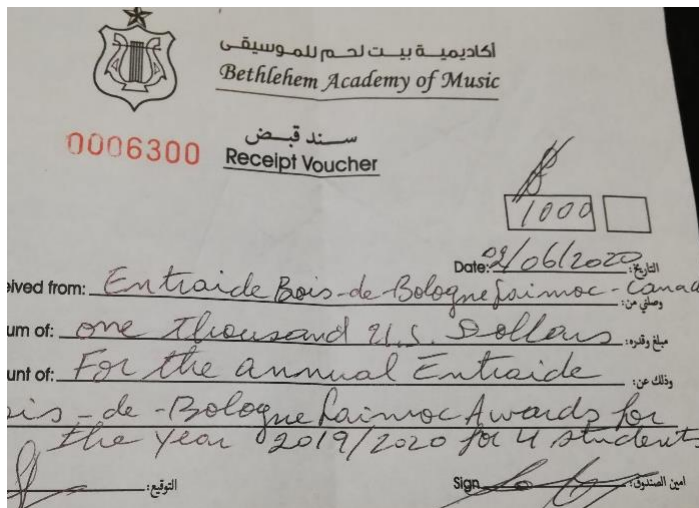 أكاديميـة بيـت لحـم للمـوسيقـى
Bethlehem Academy of Music
0006300
سـند قبـض
Receipt Voucher
1000
Date: 09/06/2020 التاريخ:
ived from: Entraide Bois-de-Bologne - Canad وصلني من:
um of: one Thousand U.S. Dollars مبلغ وقدره:
unt of: For the annual Entraide وذلك عن:
is-de-Bologne Awards for
the year 2019/2020 for 4 students
التوقيع: Sign أمين الصندوق: